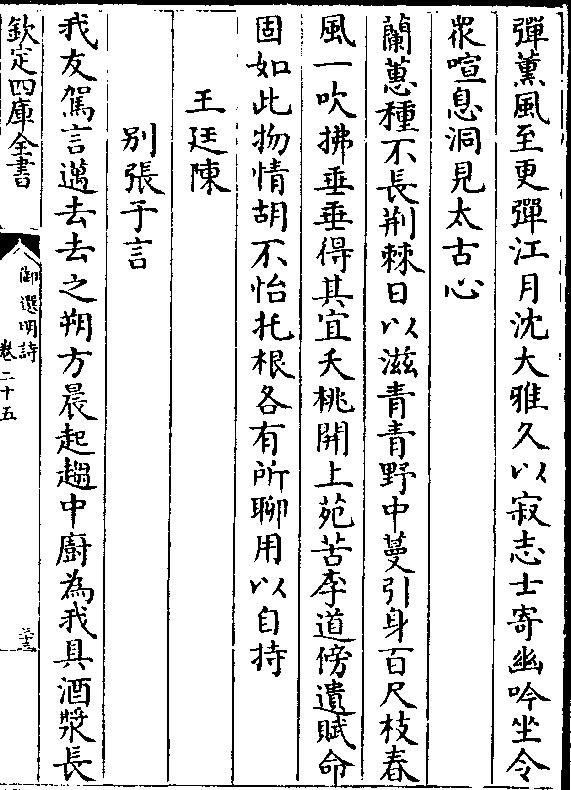 彈薫風至更彈江月沈大雅久以寂志士寄幽吟坐令
衆喧息洞見太古心
蘭蕙種不長荆棘日以滋青青野中蔓引身百尺枝春
風一吹拂垂垂得其宜夭桃開上苑苦李道傍遺賦命
固如此物情胡不怡托根各有所聊用以自持
王廷陳
别張子言
我友駕言邁去去之朔方晨起趨中廚為我具酒漿長
欽定四庫全書
御選明詩
卷二十五